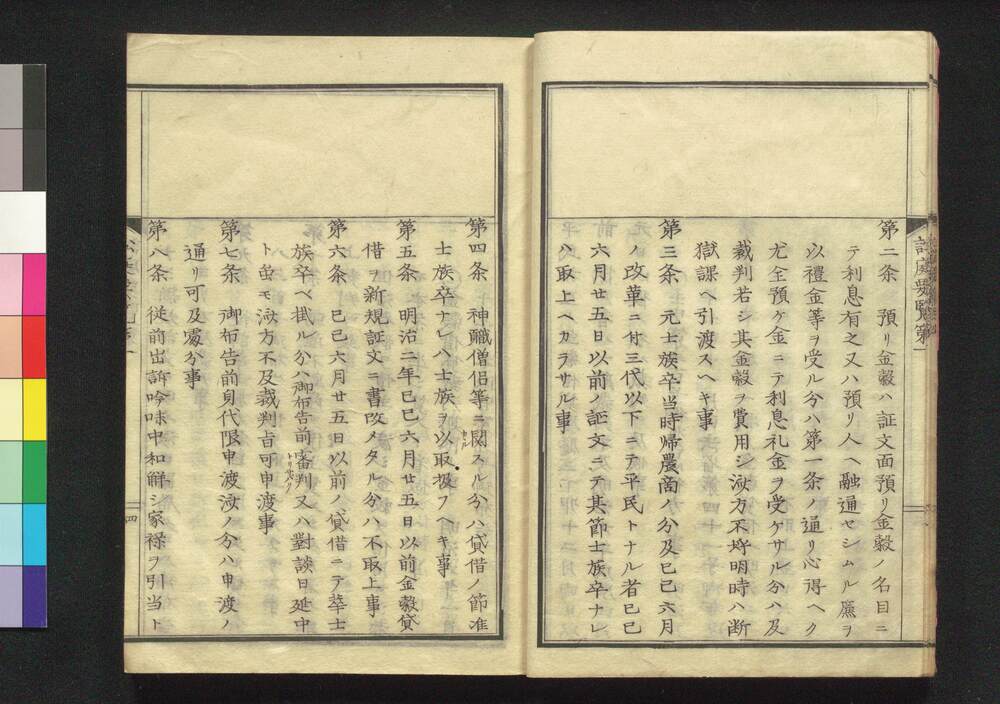 第二条　預リ金穀ハ証文面預リ金穀ノ名目ニ
テ利息有之又ハ預リ人ヘ融通セシムル廉ヲ
以禮金等ヲ受ル分ハ第一条ノ通リ心得ヘク
尤全預ケ金ニテ利息礼金ヲ受ケサル分ハ及
裁判若シ其金穀ヲ費用シ済方不埒明時ハ断
獄課ヘ引渡スヘキ事
第三条　元士族卒当時帰農商ノ分及己巳六月
ノ改革ニ付三代以下ニテ平民トナル者己巳
六月廿五日以前ノ証文ニテ其節士族卒ナレ
ハ取上ヘカラサル事
第四条　神職僧侶等ニ関スル分ハ貸借ノ節准
士族卒ナレハ士族ヲ以取扱フヘキ事
第五条　明治二年己巳六月廿五日以前金穀貸
借ヲ新規証文ニ書改メタル分ハ不取上事
第六条　己巳六月廿五日以前ノ貸借ニテ華士
族卒ヘ掛ル分ハ御布告前審判又ハ對談日延中
ト雖モ済方不及裁判旨可申渡事
第七条　御布告前身代限申渡済ノ分ハ申渡ノ
通リ可及處分事
第八条　従前出訴吟味中和解シ家禄ヲ引当ト
四